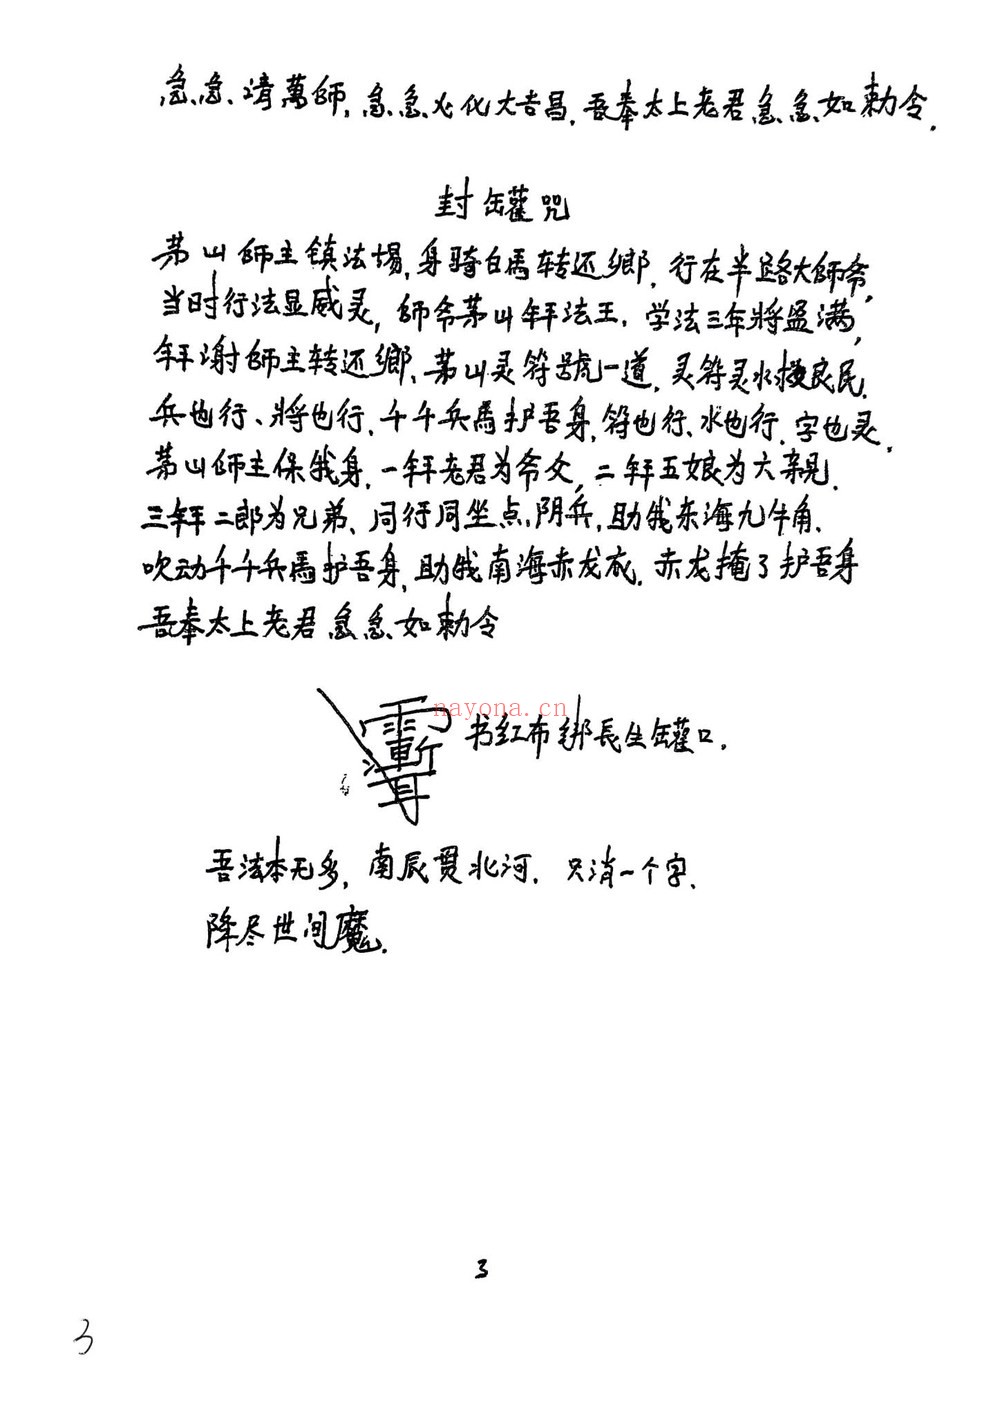 急急请萬師，急急火化大吉昌，吾奉太上老君急急如勅令．
封罐咒
茅山師主镇法場，身骑白馬转还鄉，行在半路大師爷，
当时行法显威灵，師爷茅山拜法王．学法三年將盈满，
拜谢師主转还鄉、茅山灵符號一道．灵符灵水救良民．
兵也行、將也行，千千兵馬护吾身，符也行、水也行，字也灵．
茅山師主保我身，一拜老君为爷父，二拜五娘为六親．
三拜二郎为兄弟、同行同坐点阴兵，助我东海九牛角．
吹动千千兵馬护吾身，助我南海赤龙衣．赤龙掩了护吾身
吾奉太上老君急急如勅令
nayona.cn
书红布绑長生罐口．
吾法本无多，南辰贯北河．只消一个字．
降尽世间魔．
3
3